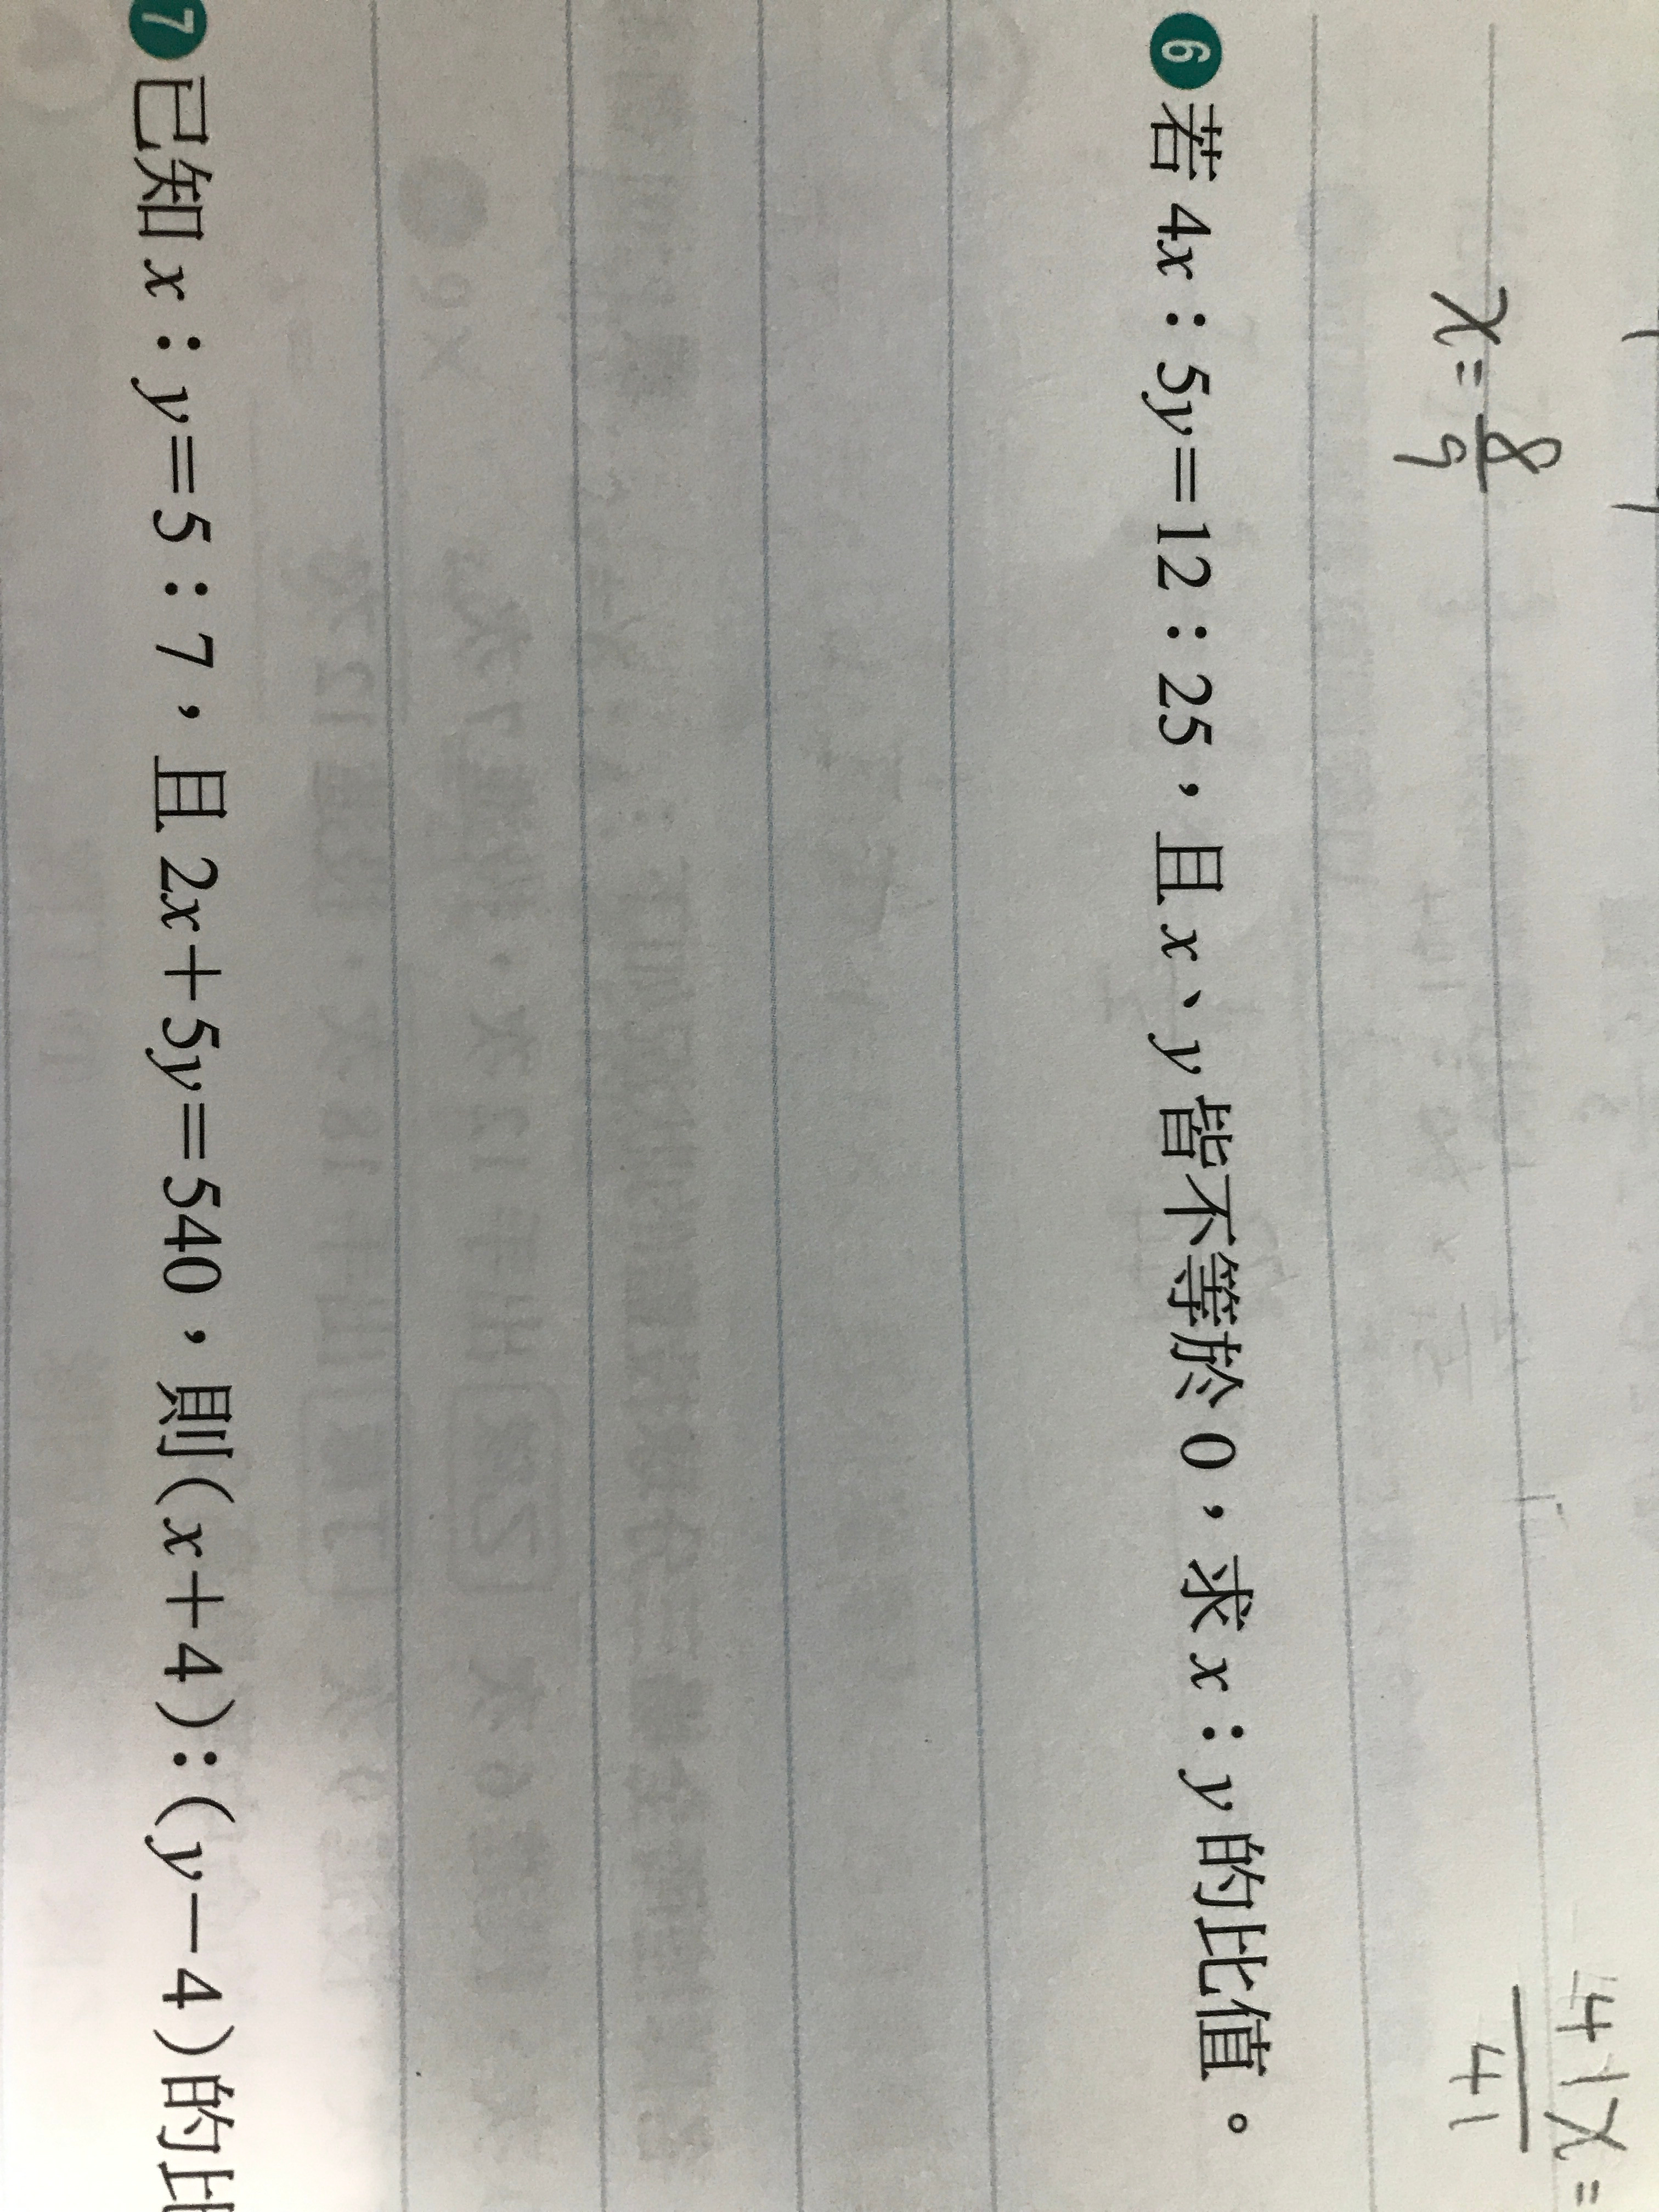 4 1x =
4 1
x = 8/9
6 若 4x:5y=12:25，且 x、y 皆不等於 0，求 x:y 的比值。
7 已知 x:y=5:7，且 2x+5y=540，則(x+4):(y-4)的比